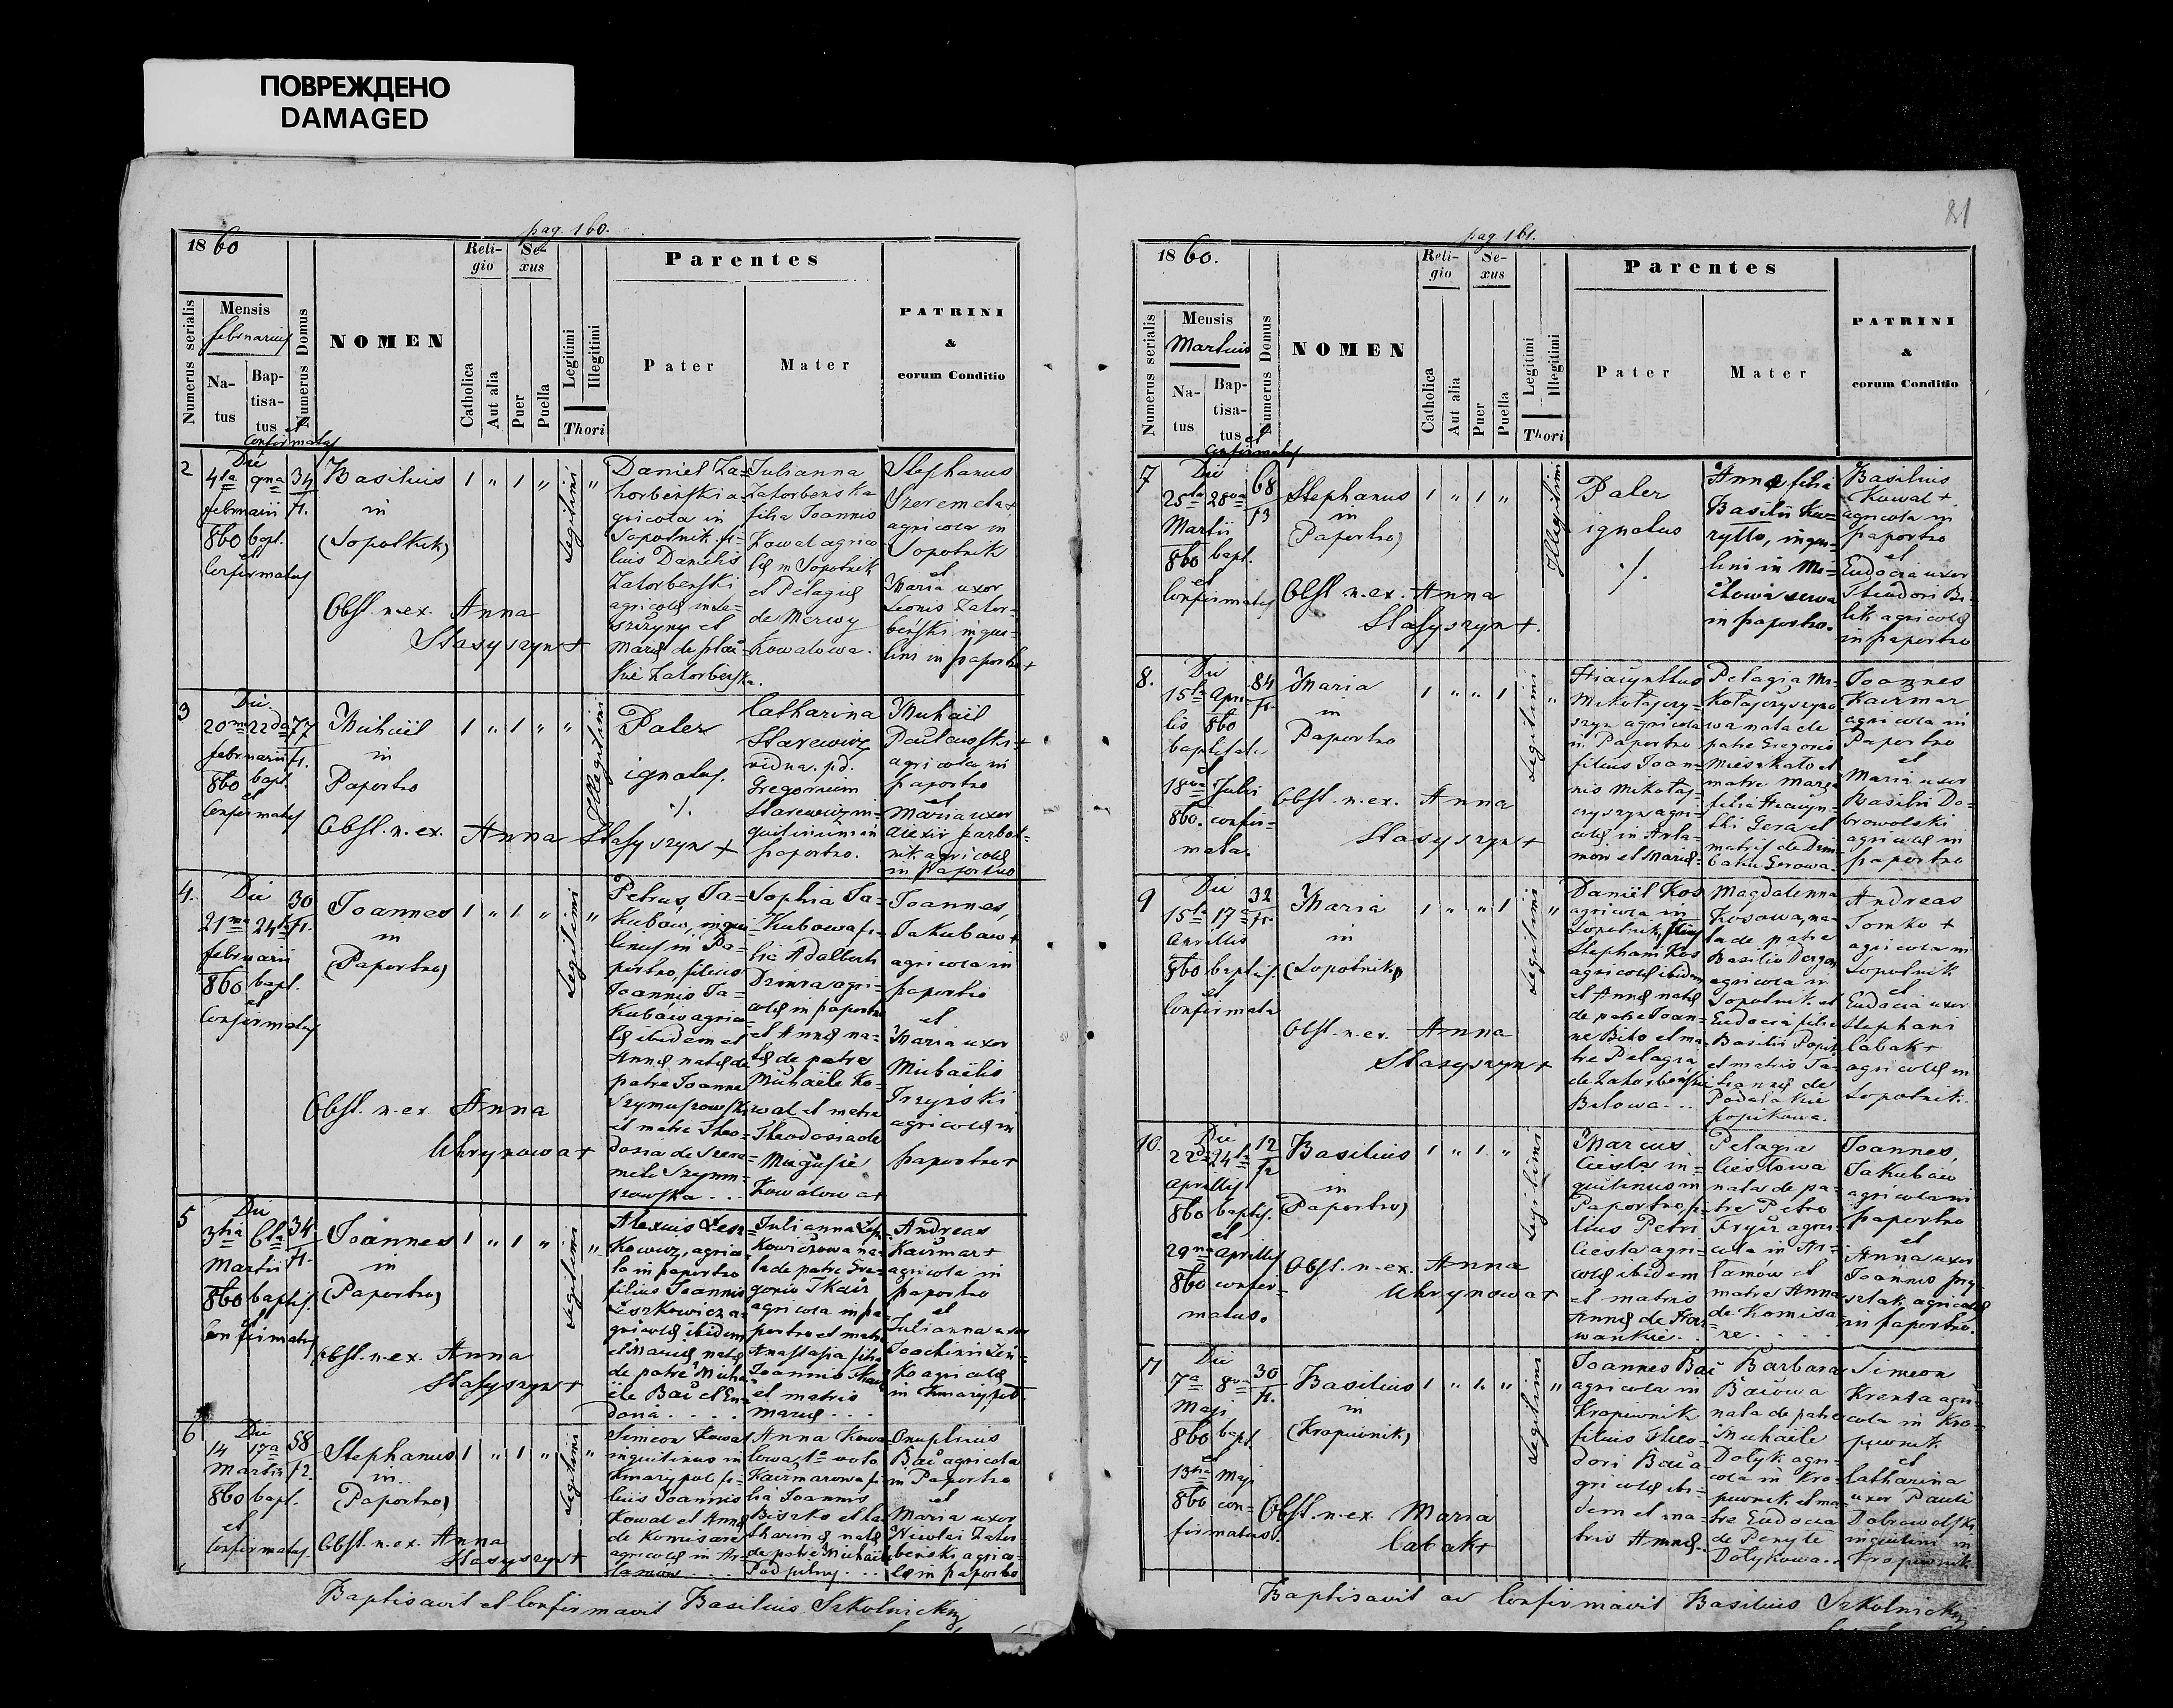 ПОВРЕЖДЕНО
DAMAGED
pag. 160.
1860
Numerus serialis
Mensis
februarius
Natus
Baptisatus et
Confirmatus
Numerus Domus
NOMEN
Religio
Catholica
Aut alia
Sexus
Puer
Puella
Legitimi
Illegitimi
Thori
Parentes
Pater
Mater
PATRINI
&
eorum Conditio
2
Die
4ta 9na
februarii
860 bapt.
et
Confirmatus
34
Basilius
in
(Sopotnik)
Obst. n. ex. Anna
Stasyszyn +
1 " 1 "
Legitimi
"
Daniel Za=
horbeński a=
gricola in
Sopotnik fi=
lius Danielis
Zatorbeński
Julianna
Zatorbenska
filia Joannis
Kowal agrico
læ in Sopotnik
et Pelagiæ
de Merwy
Kowalowa.
Stephanus
Szeremeta +
agricola in
Sopotnik
et
Maria uxor
Leonis Zator=
beński inqui=
lini in paportno +
3
Die
20ma 22da
februarii
860 bapt.
et
Confirmatus
77
Michaël
in
Paportno
Obst. n. ex. Anna Stasyszyn +
1 " 1 " "
Illegitimi
Pater
ignotus.
./.
Catharina
Starewicz
vidua. pd.
Gregorium
Starewicz in=
quilinum in
paportno.
Michaël
Paulowski +
agricola in
paportno
et
Maria uxor
in paportno
4.
Die
21ma 24ta
februarii
860 bapt.
et
Confirmatus
30
Joannes
in
(Paportno)
Obst. n. ex Anna
Uhrynowa +
1 " 1 "
Legitimi
"
Petrus Ja=
kubów, inqui
linus in Pa=
portno filius
Joannis Ja=
kubów agrico=
læ ibidem et
Annæ natæ de
patre Joanne
Sophia Ja=
kubowa fi=
lia Adalberti
agri=
colæ in paportno
et Annæ na=
tæ de patre
Michaële Ko=
wal et matre
Theodosia de
Kowalowa +
Joannes
Jakubow +
agricola in
paportno
et
Maria uxor
Michaëlis
agricolæ in
paportno +
5
Die
3tia 6ta
Martii
860 baptis.
et
Confirmatus
34
Joannes
in
(Paportno)
Obst. n. ex. Anna
Stasyszyn +
1 " 1 "
Legitimi
"
agrico
la in paportno
filius Joannis
Leszkowicz a=
gricolæ ibidem
et Mariæ natæ
de patre Micha
ële Bać et Eu
doxia . . . .
Julianna
na=
ta de patre Gre=
gorio Tkacz
agricola in pa
portno et matre
Anastasia filia
Joannis Tkacz
et matris
Mariæ . . .
Andreas
Kaczmar +
agricola in
paportno
et
Julianna uxor
Joachimi
agricolæ
6
Die
14 17a
Martii
860 bapt.
et
Confirmatus.
58
Stephanus
in
(Paportno)
Obst. n. ex. Anna
Stasyszyn +
1 " 1 "
Legitimi
"
Simeon Kowal
inquilinus in
fi=
lius Joannis
Kowal et Annæ
de Komisare
agricolæ in Ar=
lamów . . .
Anna Kowa
lowa, 1mo voto
Kaczmarowa fi=
lia Joannis
et Ca
tharinæ natæ
de patre Michaël
Onuphrius
Bać agricola
in Paportno
et
Maria uxor
Nicolai Zator=
beński agrico=
læ in paportno
Baptisavit et Confirmavit Basilius Szkolnicki
81
pag 161.
1860.
Numerus serialis
Mensis
Martius
Natus
Baptisatus et
Confirmatus
Numerus Domus
NOMEN
Religio
Catholica
Aut alia
Sexus
Puer
Puella
Legitimi
Illegitimi
Thori
Parentes
Pater
Mater
PATRINI
&
eorum Conditio
7
Die
25ta 28va
Martii
860 bapt.
et
Confirmatus
68
Stephanus
in
(Paportno)
Obst. n. ex. Anna
Stasyszyn +.
1 " 1 "
Illegitimi
Pater
ignotus
./.
Anna filia
Basilii Ku=
ryłło, inqui=
lini in
serva
in paportno.
Basilius
Kowal +
agricola in
paportno
et
Eudocia uxor
Theodori Bi
lik agricolæ
in paportno
8.
Die
15ta Apri
lis 860
baptisata
et
18va Julii
860. confir=
mata.
84
Maria
in
Paportno
Obst. n. ex. Anna
Stasyszyn +
1 " " 1
Legitimi
"
Hiacynthus
Mikołajczy=
szyn agricola
in Paportno
filius Joan=
nis Mikołaj=
czyszyn agri=
colæ in Arła=
mów et Mariæ
Pelagia Mi=
kołajczyszyno
wa nata de
patre Gregorio
et
matre
filia Hiacyn=
thi Gera et
matris de Dem
Gerowa.
Joannes
Kaczmar
agricola in
Paportno
et
Maria uxor
Basilii Do=
browolski
agricolæ in
paportno
9
Die
15ta 17a
Aprillis
860 baptis.
et
Confirmata
32
Maria
in
(Sopotnik)
Obst. n. ex. Anna
Stasyszyn +
1 " " 1
Legitimi
"
Daniël Kos
agricola in
Sopotnik, filius
Stephani Kos
agricolæ ibidem
et Annæ natæ
de patre Joan=
ne Biło et ma=
tre Pelagia
de Zatorbeński
Biłowa . . .
Magdalenna
Kosowa, na=
ta de patre
Basilio
agricola in
Sopotnik et
Eudocia filia
Basilii Popik
et matris Ta=
tiannæ de
popikowa.
Andreas
Tomko +
agricola in
Sopotnik
et
Eudocia uxor
Stephani
Cabak +
agricolæ in
Sopotnik.
10.
Die
22da 24ta
Aprillis
860 baptis.
et
29na Aprillis
860 confir=
matus.
12
Basilius
in
(Paportno)
Obst. n. ex. Anna
Uhrynowa +
1 " 1 "
Legitimi
Marcus
Ciesla in=
quilinus in
Paportno fi=
lius Petri
Ciesla agri=
colæ ibidem
et matris
Annæ de
Pelagia
Cieslowa
nata de pa=
tre Petro
Fryź agri=
cola in Ar=
łamów et
matre Anna
de Komisa=
re . . . .
Joannes
Jakubów
agricola in
paportno
et
Anna uxor
Joannis
agricolæ
in paportno.
11
Die
7a 8va
Maji
860 bapt.
et
13tia Maji
860 con=
firmatus.
30
Basilius
in
(Kropiwnik)
Obst. n. ex. Maria
Cabak +
1 " 1 "
Legitimi
"
Joannes Bać
agricola in
Kropiwnik
filius Theo=
dori Bać a=
gricolæ ibi=
dem et ma=
tris Annæ . .
Barbara
Baćowa
nata de patre
Michaële
Dołyk agri=
cola in Kro=
piwnik et ma=
tre Eudocia
de
Dołykowa . .
Simeon
Krenta agri=
cola in Kro=
piwnik
et
Catharina
uxor Pauli
Dobrowolski
inquilini in
Kropiwnik
Baptisavit ac Confirmavit Basilius Szkolnicki